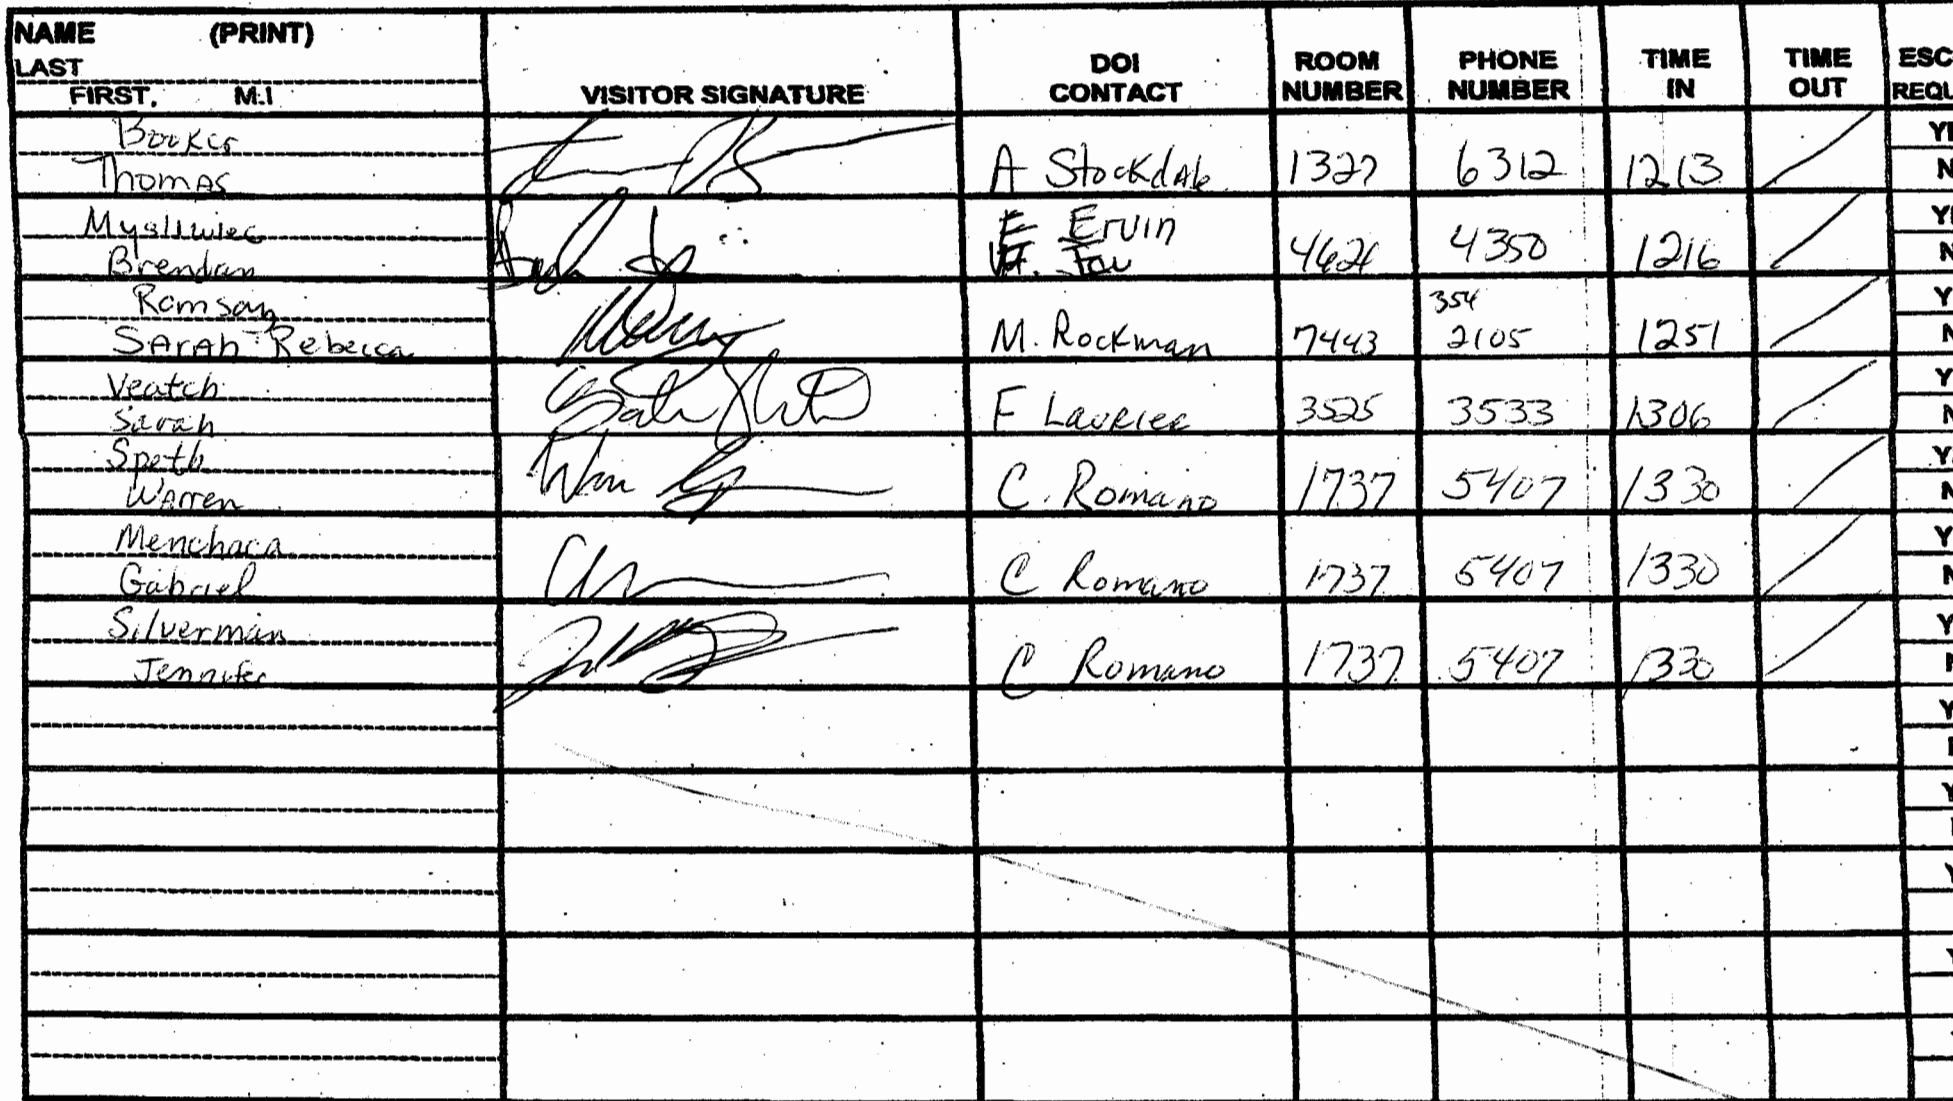 NAME (PRINT)
LAST
FIRST, M.I
VISITOR SIGNATURE
DOI
CONTACT
ROOM
NUMBER
PHONE
NUMBER
TIME
IN
TIME
OUT
ESC
REQU
Booker
Thomas
A Stockdale 1327 6312 1213
Brendan
E Ervin
4350 1216
Ramsay
Sarah Rebecca
M. Rockman 7443 354 2105 1251
Veatch
Sarah
F 3525 3533 1306
Speth
Warren
C. Romano 1737 5407 1330
Menchaca
Gabriel
C Romano 1737 5407 1330
Silverman
Jennifer
C Romano 1737 5407 1330